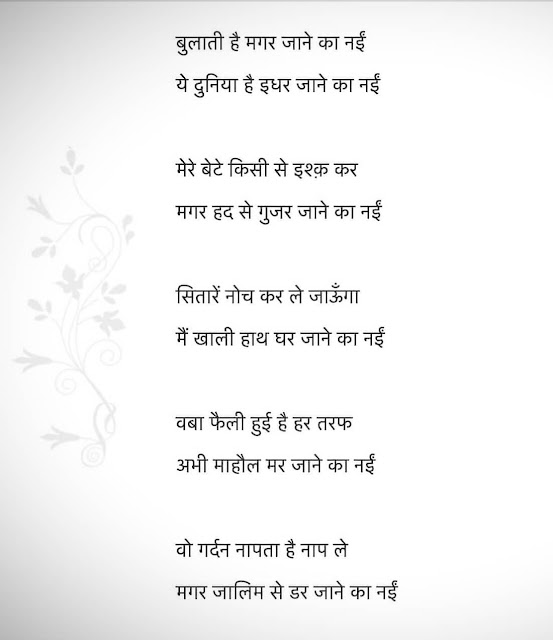 बुलाती है मगर जाने का नईं
ये दुनिया है इधर जाने का नईं
मेरे बेटे किसी से इश्क़ कर
मगर हद से गुजर जाने का नईं
सितारें नोच कर ले जाऊँगा
मैं खाली हाथ घर जाने का नईं
वबा फैली हुई है हर तरफ
अभी माहौल मर जाने का नईं
वो गर्दन नापता है नाप ले
मगर जालिम से डर जाने का नईं